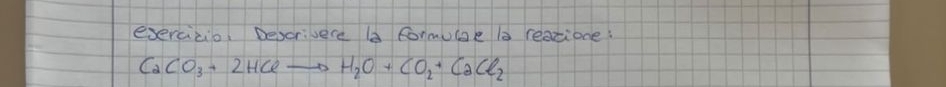 esercizio: Descrivere la formula e la reazione:
CaCO₃ + 2HCl → H₂O + CO₂ + CaCl₂